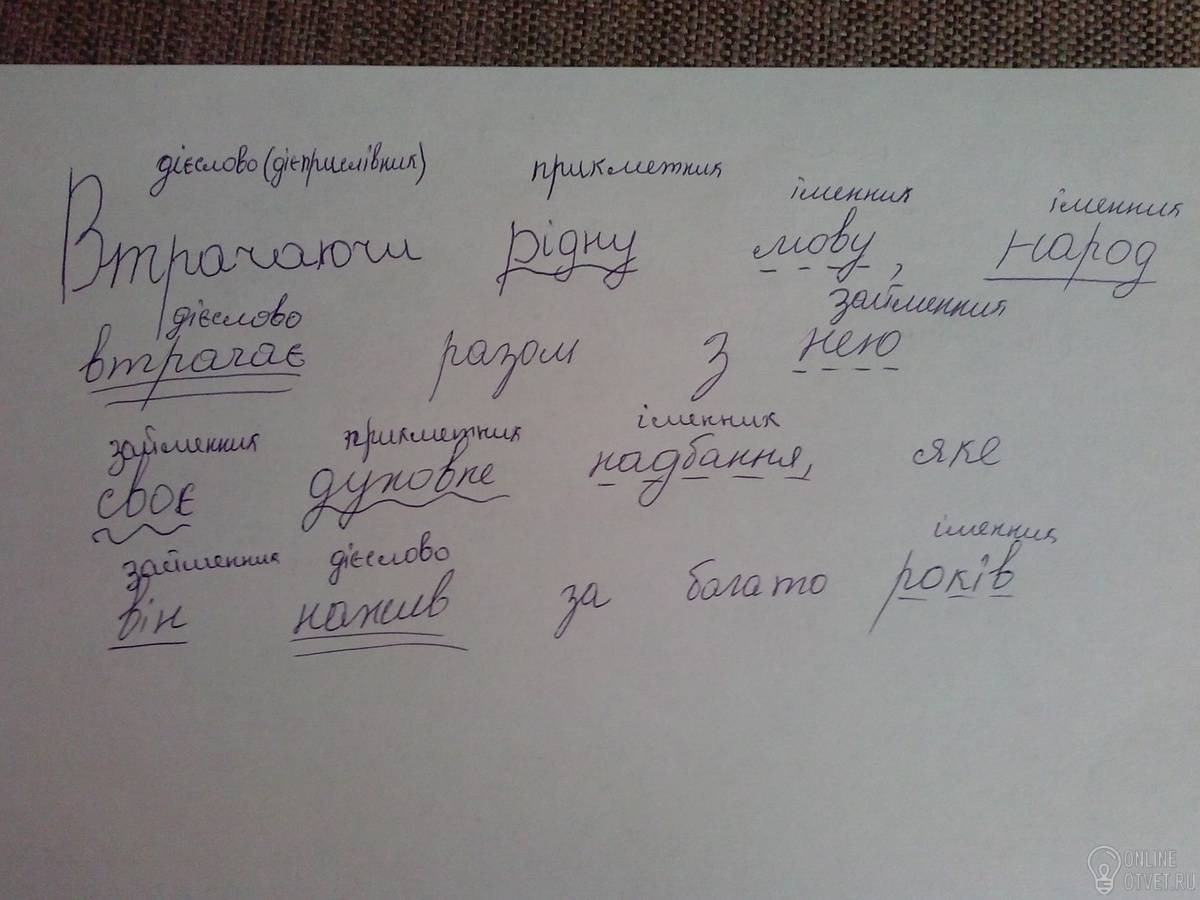 дієслово (дієприслівник) прикметник іменник іменник
Втрачаючи рідну мову, народ
дієслово займенник
втрачає разом з нею
займенник прикметник іменник
своє духовне надбання, яке
займенник дієслово іменник
він нажив за багато років
ONLINE
OTVET.RU